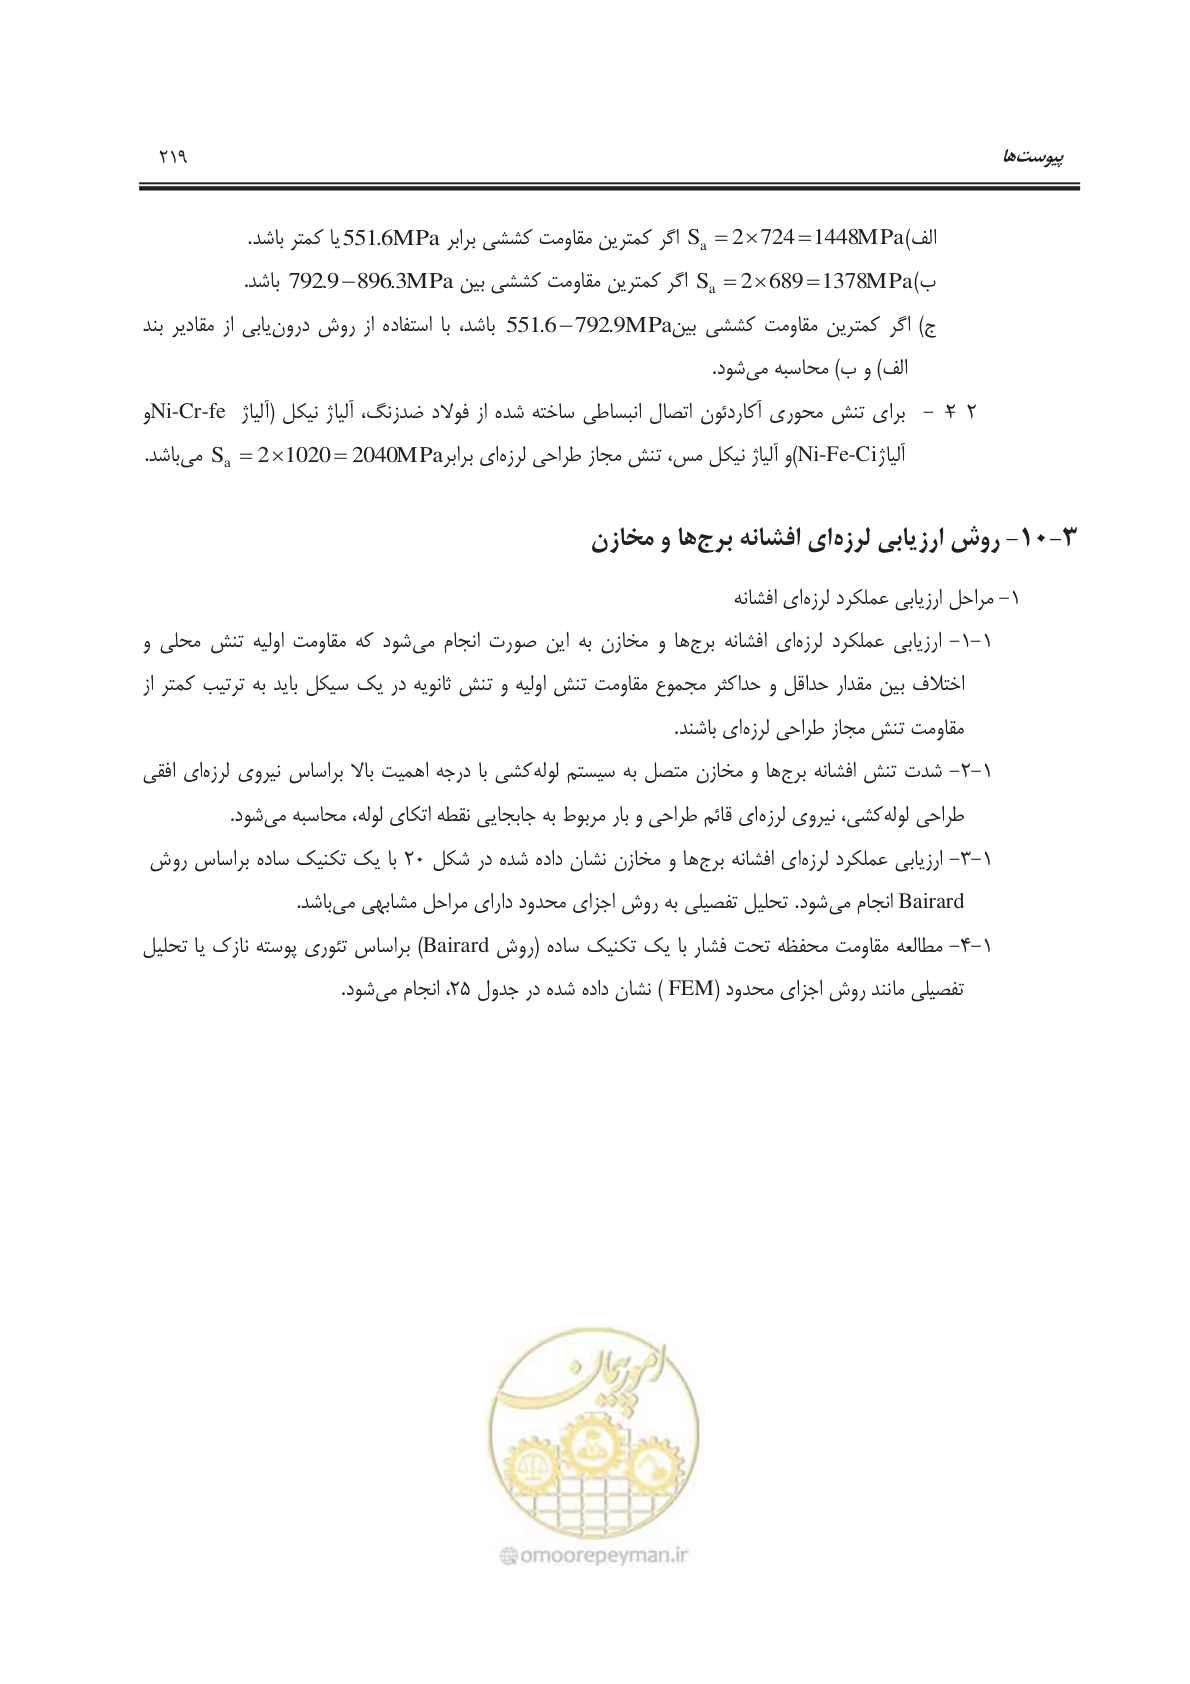 پیوست‌ها ۲۱۹
الف) Sa = 2×724=1448MPa اگر کمترین مقاومت کششی برابر 551.6MPa یا کمتر باشد.
ب) Sa = 2×689=1378MPa اگر کمترین مقاومت کششی بین 792.9–896.3MPa باشد.
ج) اگر کمترین مقاومت کششی بین 551.6–792.9MPa باشد، با استفاده از روش درون‌یابی از مقادیر بند
الف) و ب) محاسبه می‌شود.
۲ ۴ ۲ – برای تنش محوری آکاردئون اتصال انبساطی ساخته شده از فولاد ضدزنگ، آلیاژ نیکل (آلیاژ Ni-Cr-fe و
آلیاژ Ni-Fe-Ci) و آلیاژ نیکل مس، تنش مجاز طراحی لرزه‌ای برابر Sa = 2×1020=2040MPa می‌باشد.
۳-۱۰- روش ارزیابی لرزه‌ای افشانه برج‌ها و مخازن
۱- مراحل ارزیابی عملکرد لرزه‌ای افشانه
۱-۱- ارزیابی عملکرد لرزه‌ای افشانه برج‌ها و مخازن به این صورت انجام می‌شود که مقاومت اولیه تنش محلی و
اختلاف بین مقدار حداقل و حداکثر مجموع مقاومت تنش اولیه و تنش ثانویه در یک سیکل باید به ترتیب کمتر از
مقاومت تنش مجاز طراحی لرزه‌ای باشند.
۱-۲- شدت تنش افشانه برج‌ها و مخازن متصل به سیستم لوله‌کشی با درجه اهمیت بالا براساس نیروی لرزه‌ای افقی
طراحی لوله‌کشی، نیروی لرزه‌ای قائم طراحی و بار مربوط به جابجایی نقطه اتکای لوله، محاسبه می‌شود.
۱-۳- ارزیابی عملکرد لرزه‌ای افشانه برج‌ها و مخازن نشان داده شده در شکل ۲۰ با یک تکنیک ساده براساس روش
Bairard انجام می‌شود. تحلیل تفصیلی به روش اجزای محدود دارای مراحل مشابهی می‌باشد.
۱-۴- مطالعه مقاومت محفظه تحت فشار با یک تکنیک ساده (روش Bairard) براساس تئوری پوسته نازک یا تحلیل
تفصیلی مانند روش اجزای محدود (FEM ) نشان داده شده در جدول ۲۵، انجام می‌شود.
امور پیمان
omoorepeyman.ir